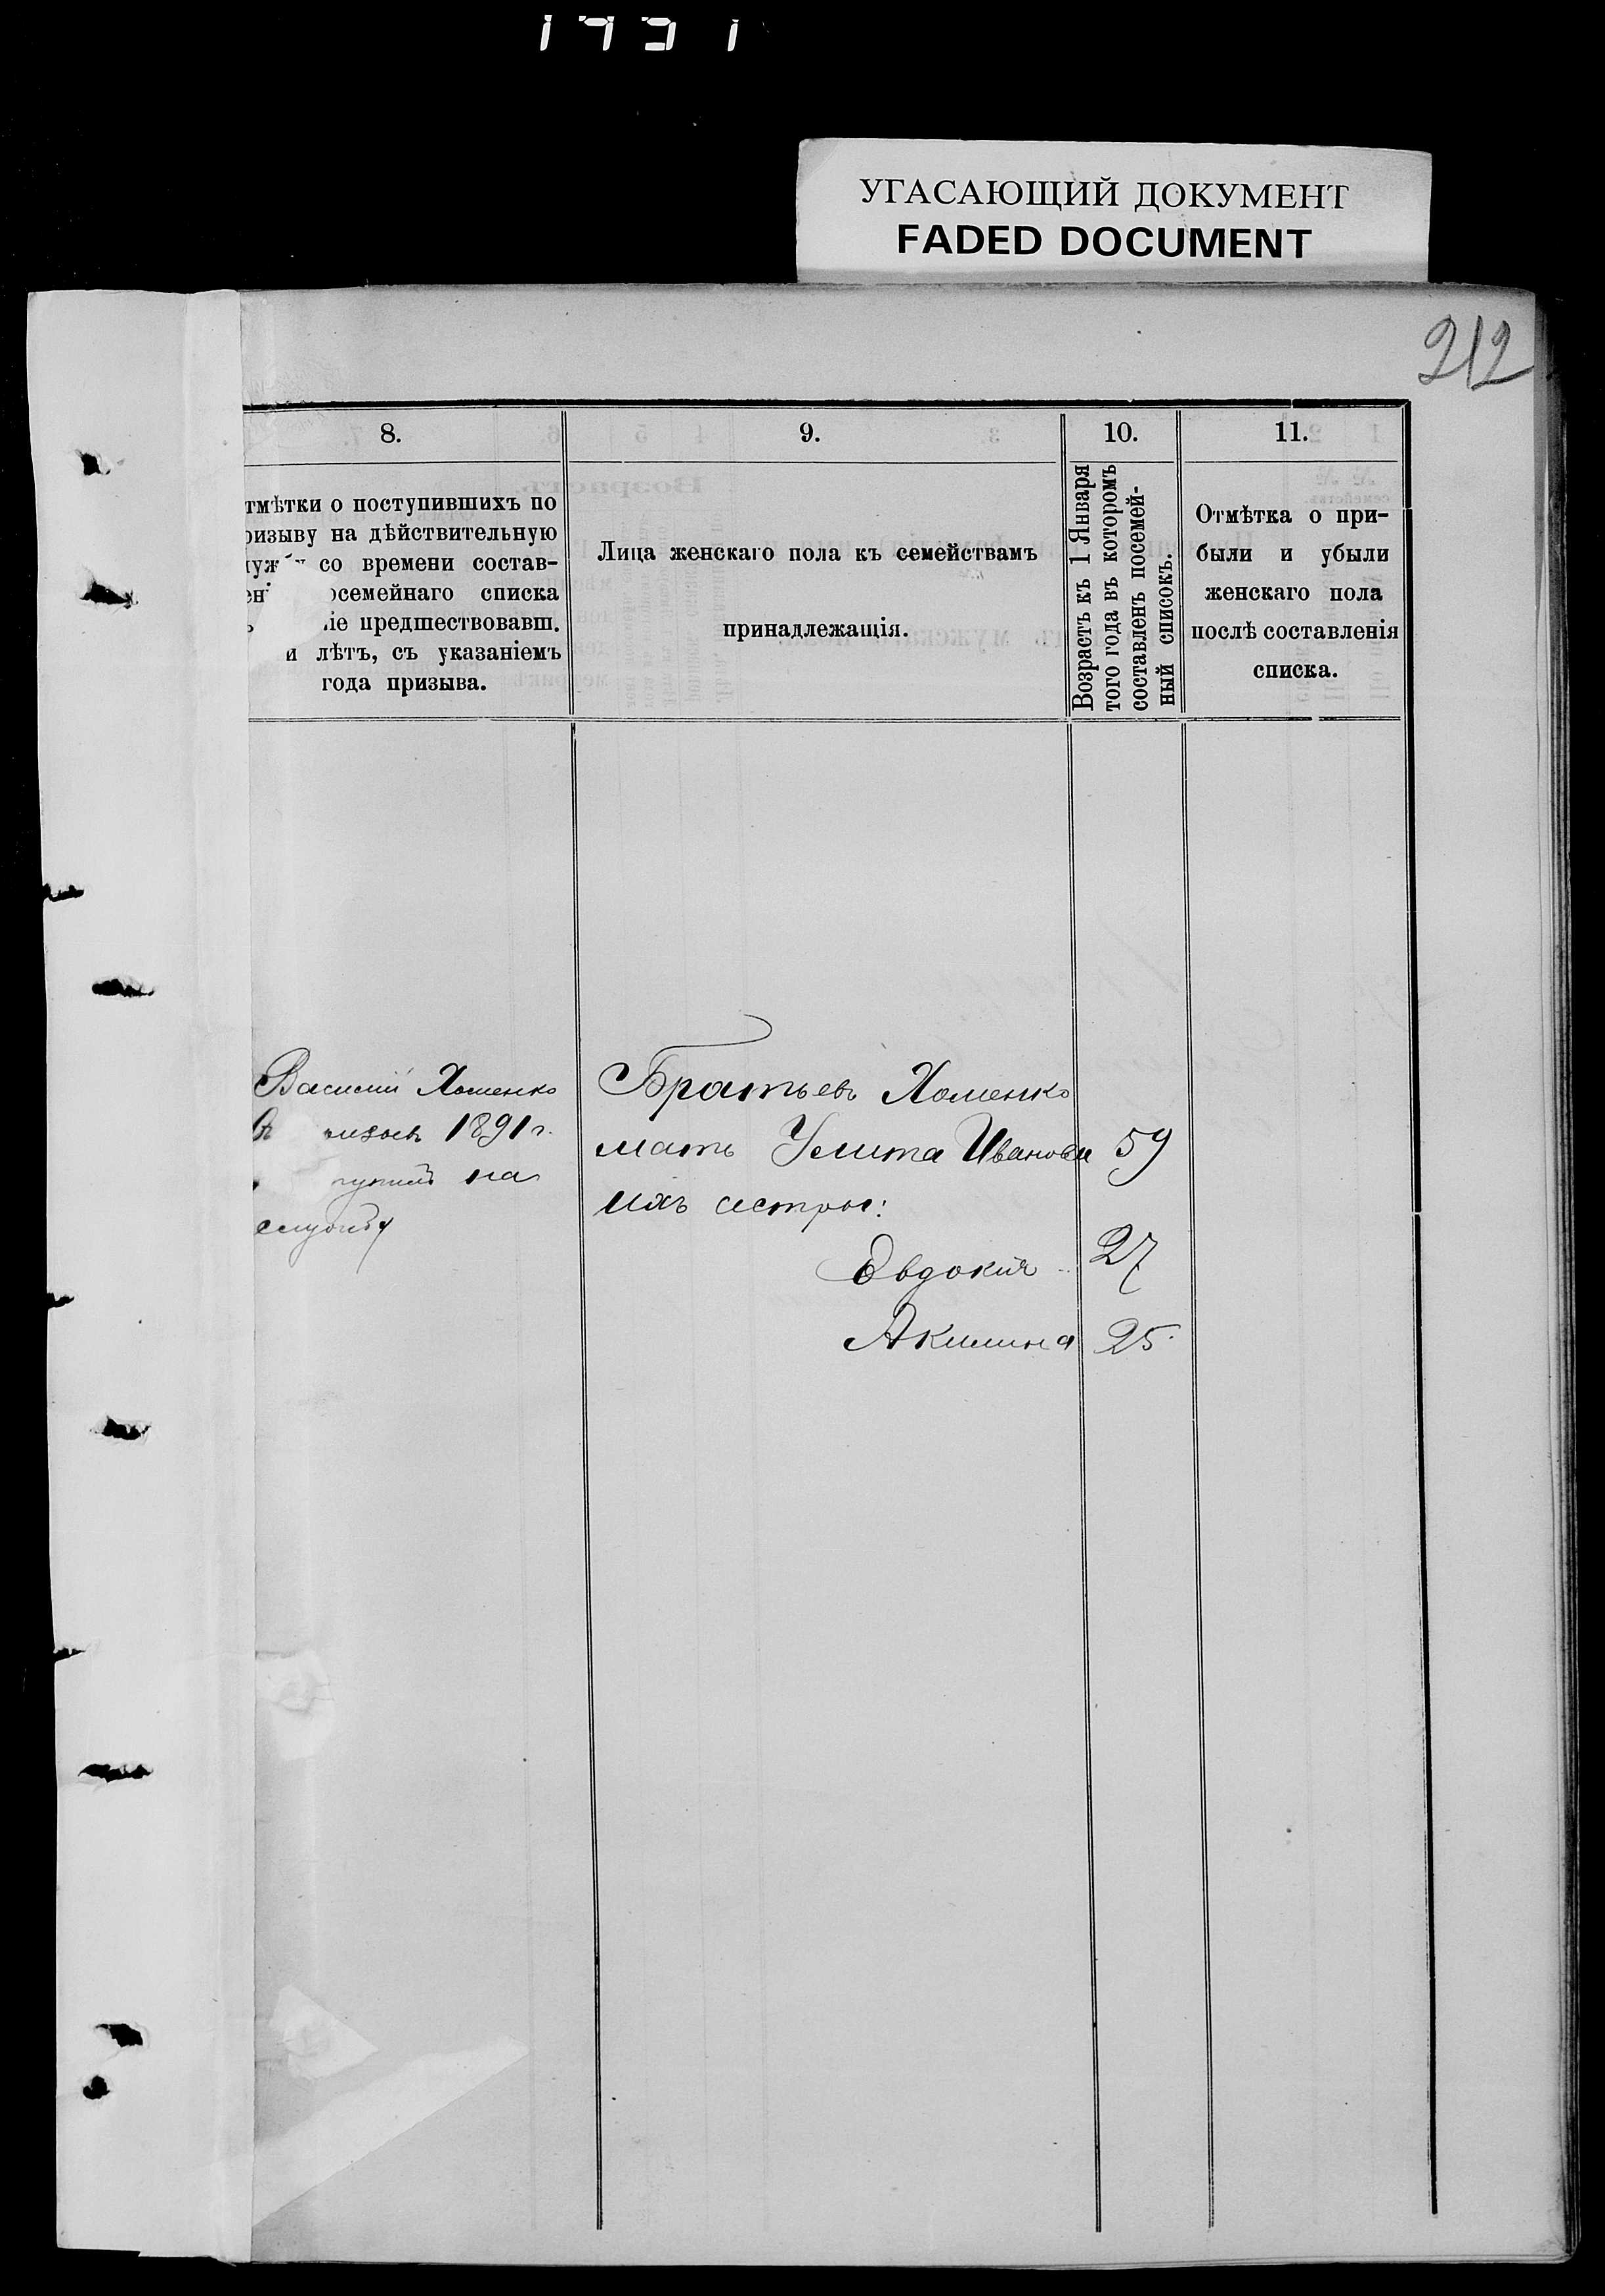 УГАСАЮЩИЙ ДОКУМЕНТ
FADED DOCUMENT
212
8.
тмѣтки о поступившихъ по
ризыву на дѣйствительную
со времени состав-
семейнаго списка
іе предшествовавш.
и лѣтъ, съ указаніемъ
года призыва.
9.
Лица женскаго пола къ семействамъ
принадлежащія.
10.
Возрастъ къ 1 Января
того года въ которомъ
составленъ посемей-
ный списокъ.
11.
Отмѣтка о при-
были и убыли
женскаго пола
послѣ составленія
списка.
Василій Хоменко
1891 г.
на
службу
Братьевъ Хоменко
мать Улита Иванова 59
ихъ сестры:
Евдокия 27
Акилина 25